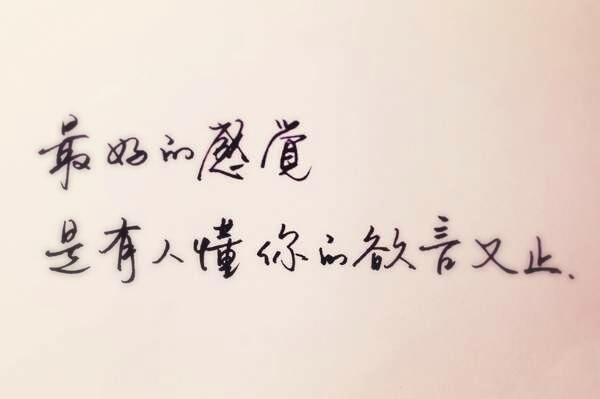 最好的感觉
是有人懂你的欲言又止、